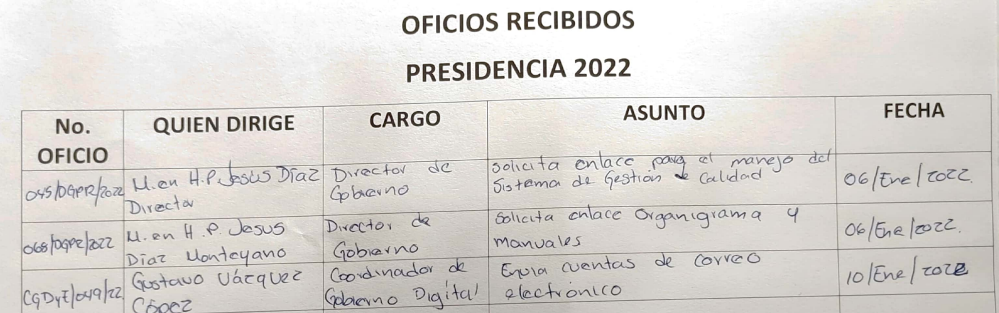 OFICIOS RECIBIDOS
PRESIDENCIA 2022
No. OFICIO QUIEN DIRIGE CARGO ASUNTO FECHA
045/DGPR/2022 M. en H.P. Jesús Díaz Director Director de Gobierno Solicita enlace para el manejo del Sistema de Gestión de Calidad 06/Ene/2022.
068/DGPR/2022 M. en H.P. Jesus Díaz Monteyano Director de Gobierno Solicita enlace Organigrama y manuales 06/Ene/2022.
CGDyE/049/22 Gustavo Vázquez López Coordinador de Gobierno Digital Envia cuentas de correo electrónico 10/Ene/2022